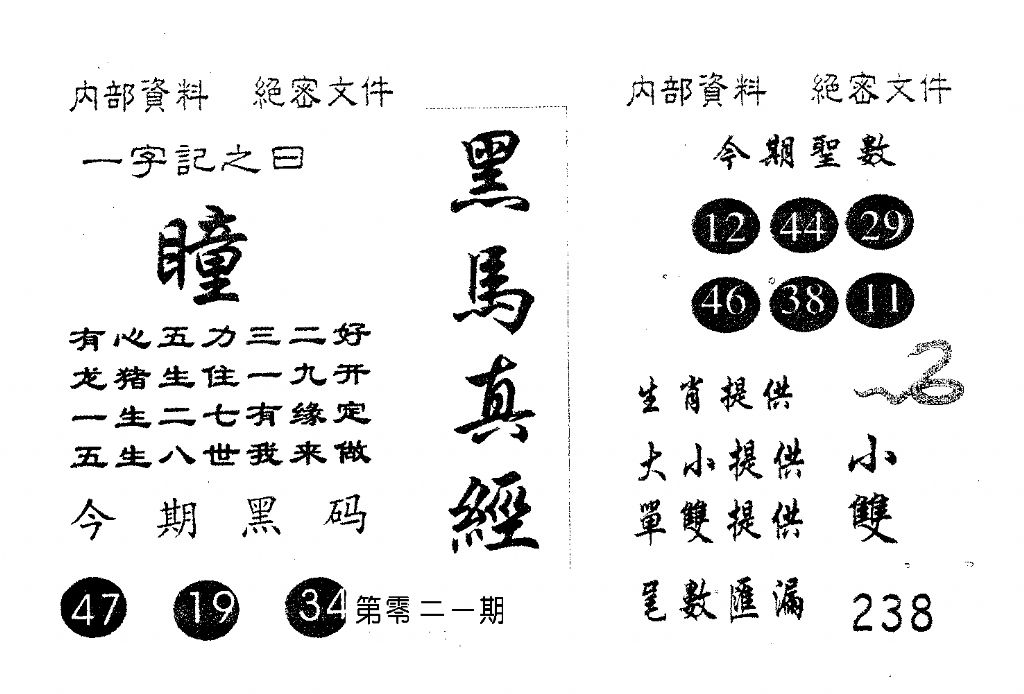 内部資料 絕密文件
一字記之曰
瞳
有心五力三二好
龙猪生住一九开
一生二七有缘定
五生八世我来做
今期黑码
47 19 34 第零二一期
黑馬真經
内部資料 絕密文件
今期聖數
12 44 29
46 38 11
生肖提供
大小提供 小
單雙提供 雙
數匯漏 238